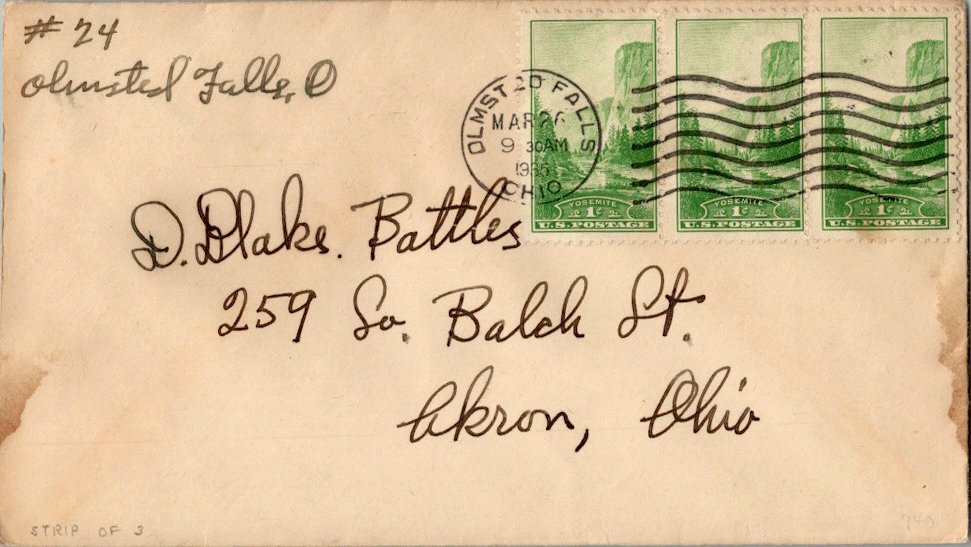 # 24
Olmsted Falls, O
OLMSTED FALLS
MAR 26
9 30AM
OHIO
YOSEMITE
1¢
U.S.POSTAGE
YOSEMITE
1¢
U.S.POSTAGE
YOSEMITE
1¢
U.S.POSTAGE
D. Blake. Battles
259 So. Balch St.
Akron, Ohio
STRIP OF 3
740